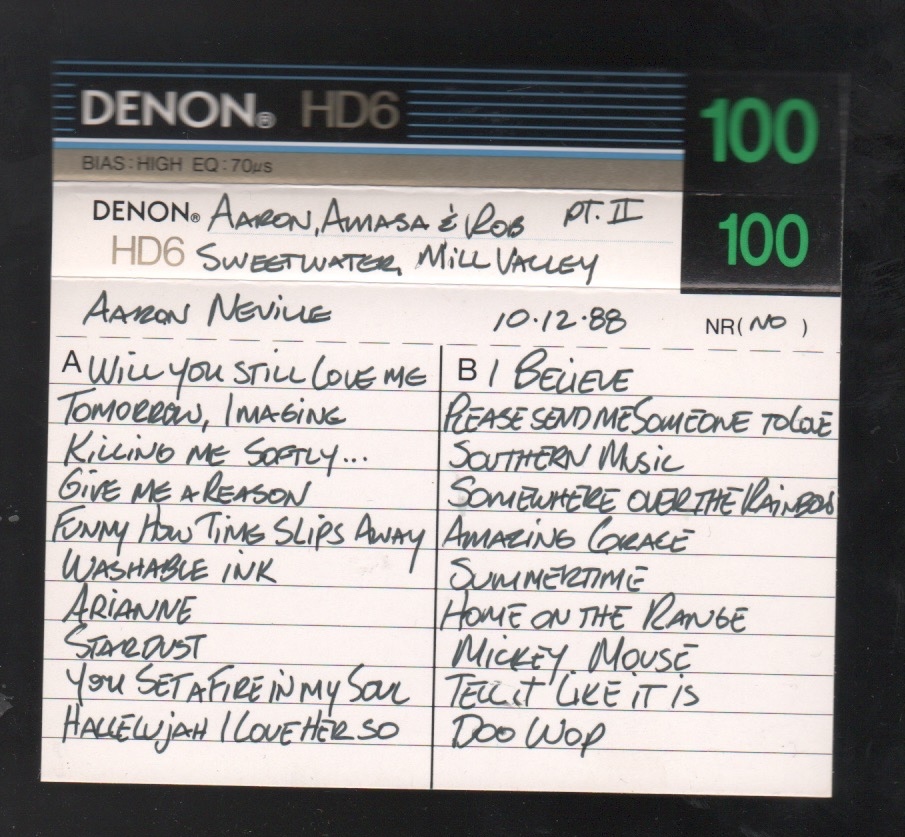 DENON® HD6 100
BIAS:HIGH EQ:70µs
DENON® AARON, AMASA & ROB PT. II
HD6 SWEETWATER, MILL VALLEY 100
AARON NEVILLE 10·12·88 NR(NO)
A WILL YOU STILL LOVE ME
TOMORROW, IMAGING
KILLING ME SOFTLY...
GIVE ME A REASON
FUNNY HOW TIME SLIPS AWAY
WASHABLE INK
ARIANNE
STARDUST
YOU SET A FIRE IN MY SOUL
HALLELUJAH I LOVE HER SO
B I BELIEVE
PLEASE SEND ME SOMEONE TO LOVE
SOUTHERN MUSIC
SOMEWHERE OVER THE RAINBOW
AMAZING GRACE
SUMMERTIME
HOME ON THE RANGE
MICKEY MOUSE
TELL IT LIKE IT IS
DOO WOP